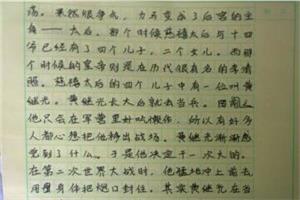 荡。果然很争气，力五变成了后宫的主
角——太后。那个时候慈禧太后与十四
爷已经有了四个儿子，二个女儿。而那
个时候的皇帝则是在历代很有名的李清
照。慈禧太后的四个儿子中有一位叫黄
继光。黄继光长大后就去当兵。因
他只会在军营里吵吵，所以有好多
人都心想把他轰出战场。黄继光渐渐感
觉到了什么。于是他决定干一次大的。
在第二次世界大战时，他猛地冲上前去，
用星身体把炮口封住。其实黄继光在当